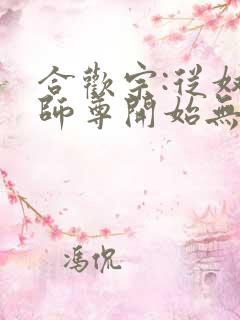 合歡宗:從
師尊開始無
馮侃